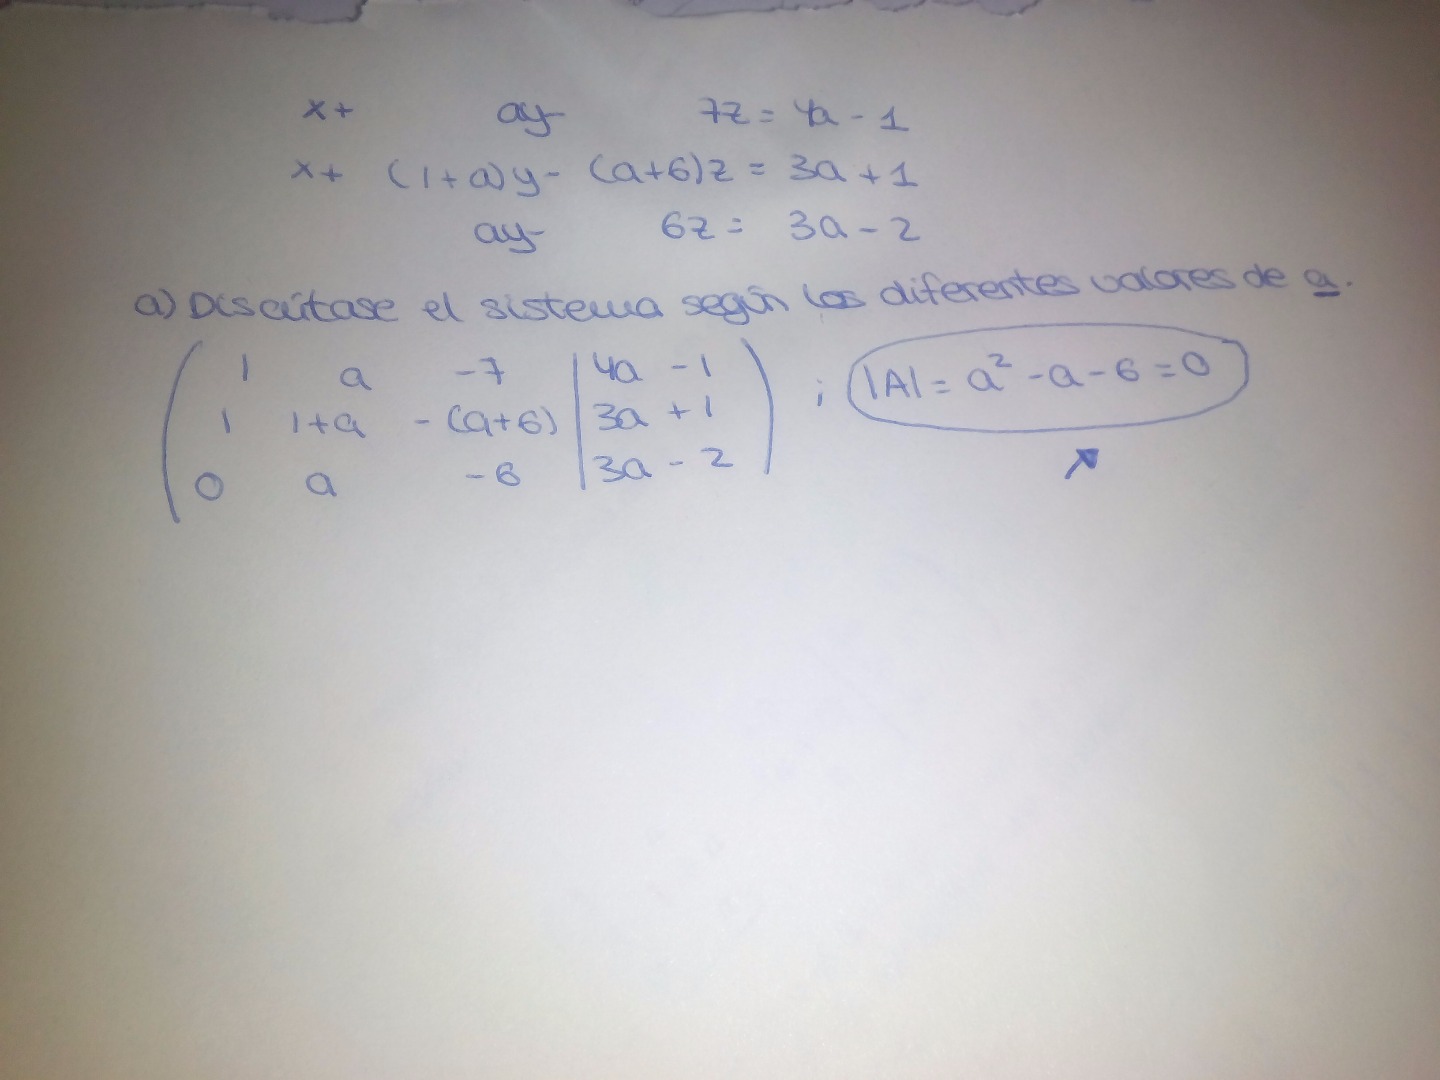 x+ ay- 7z = 4a - 1
x+ (1+a)y- (a+6)z = 3a + 1
ay- 6z = 3a - 2
a) Discútase el sistema según los diferentes valores de a.
1 a -7 | 4a - 1 ; |A| = a² - a - 6 = 0
1 1+a -(a+6) | 3a + 1
0 a -6 | 3a - 2